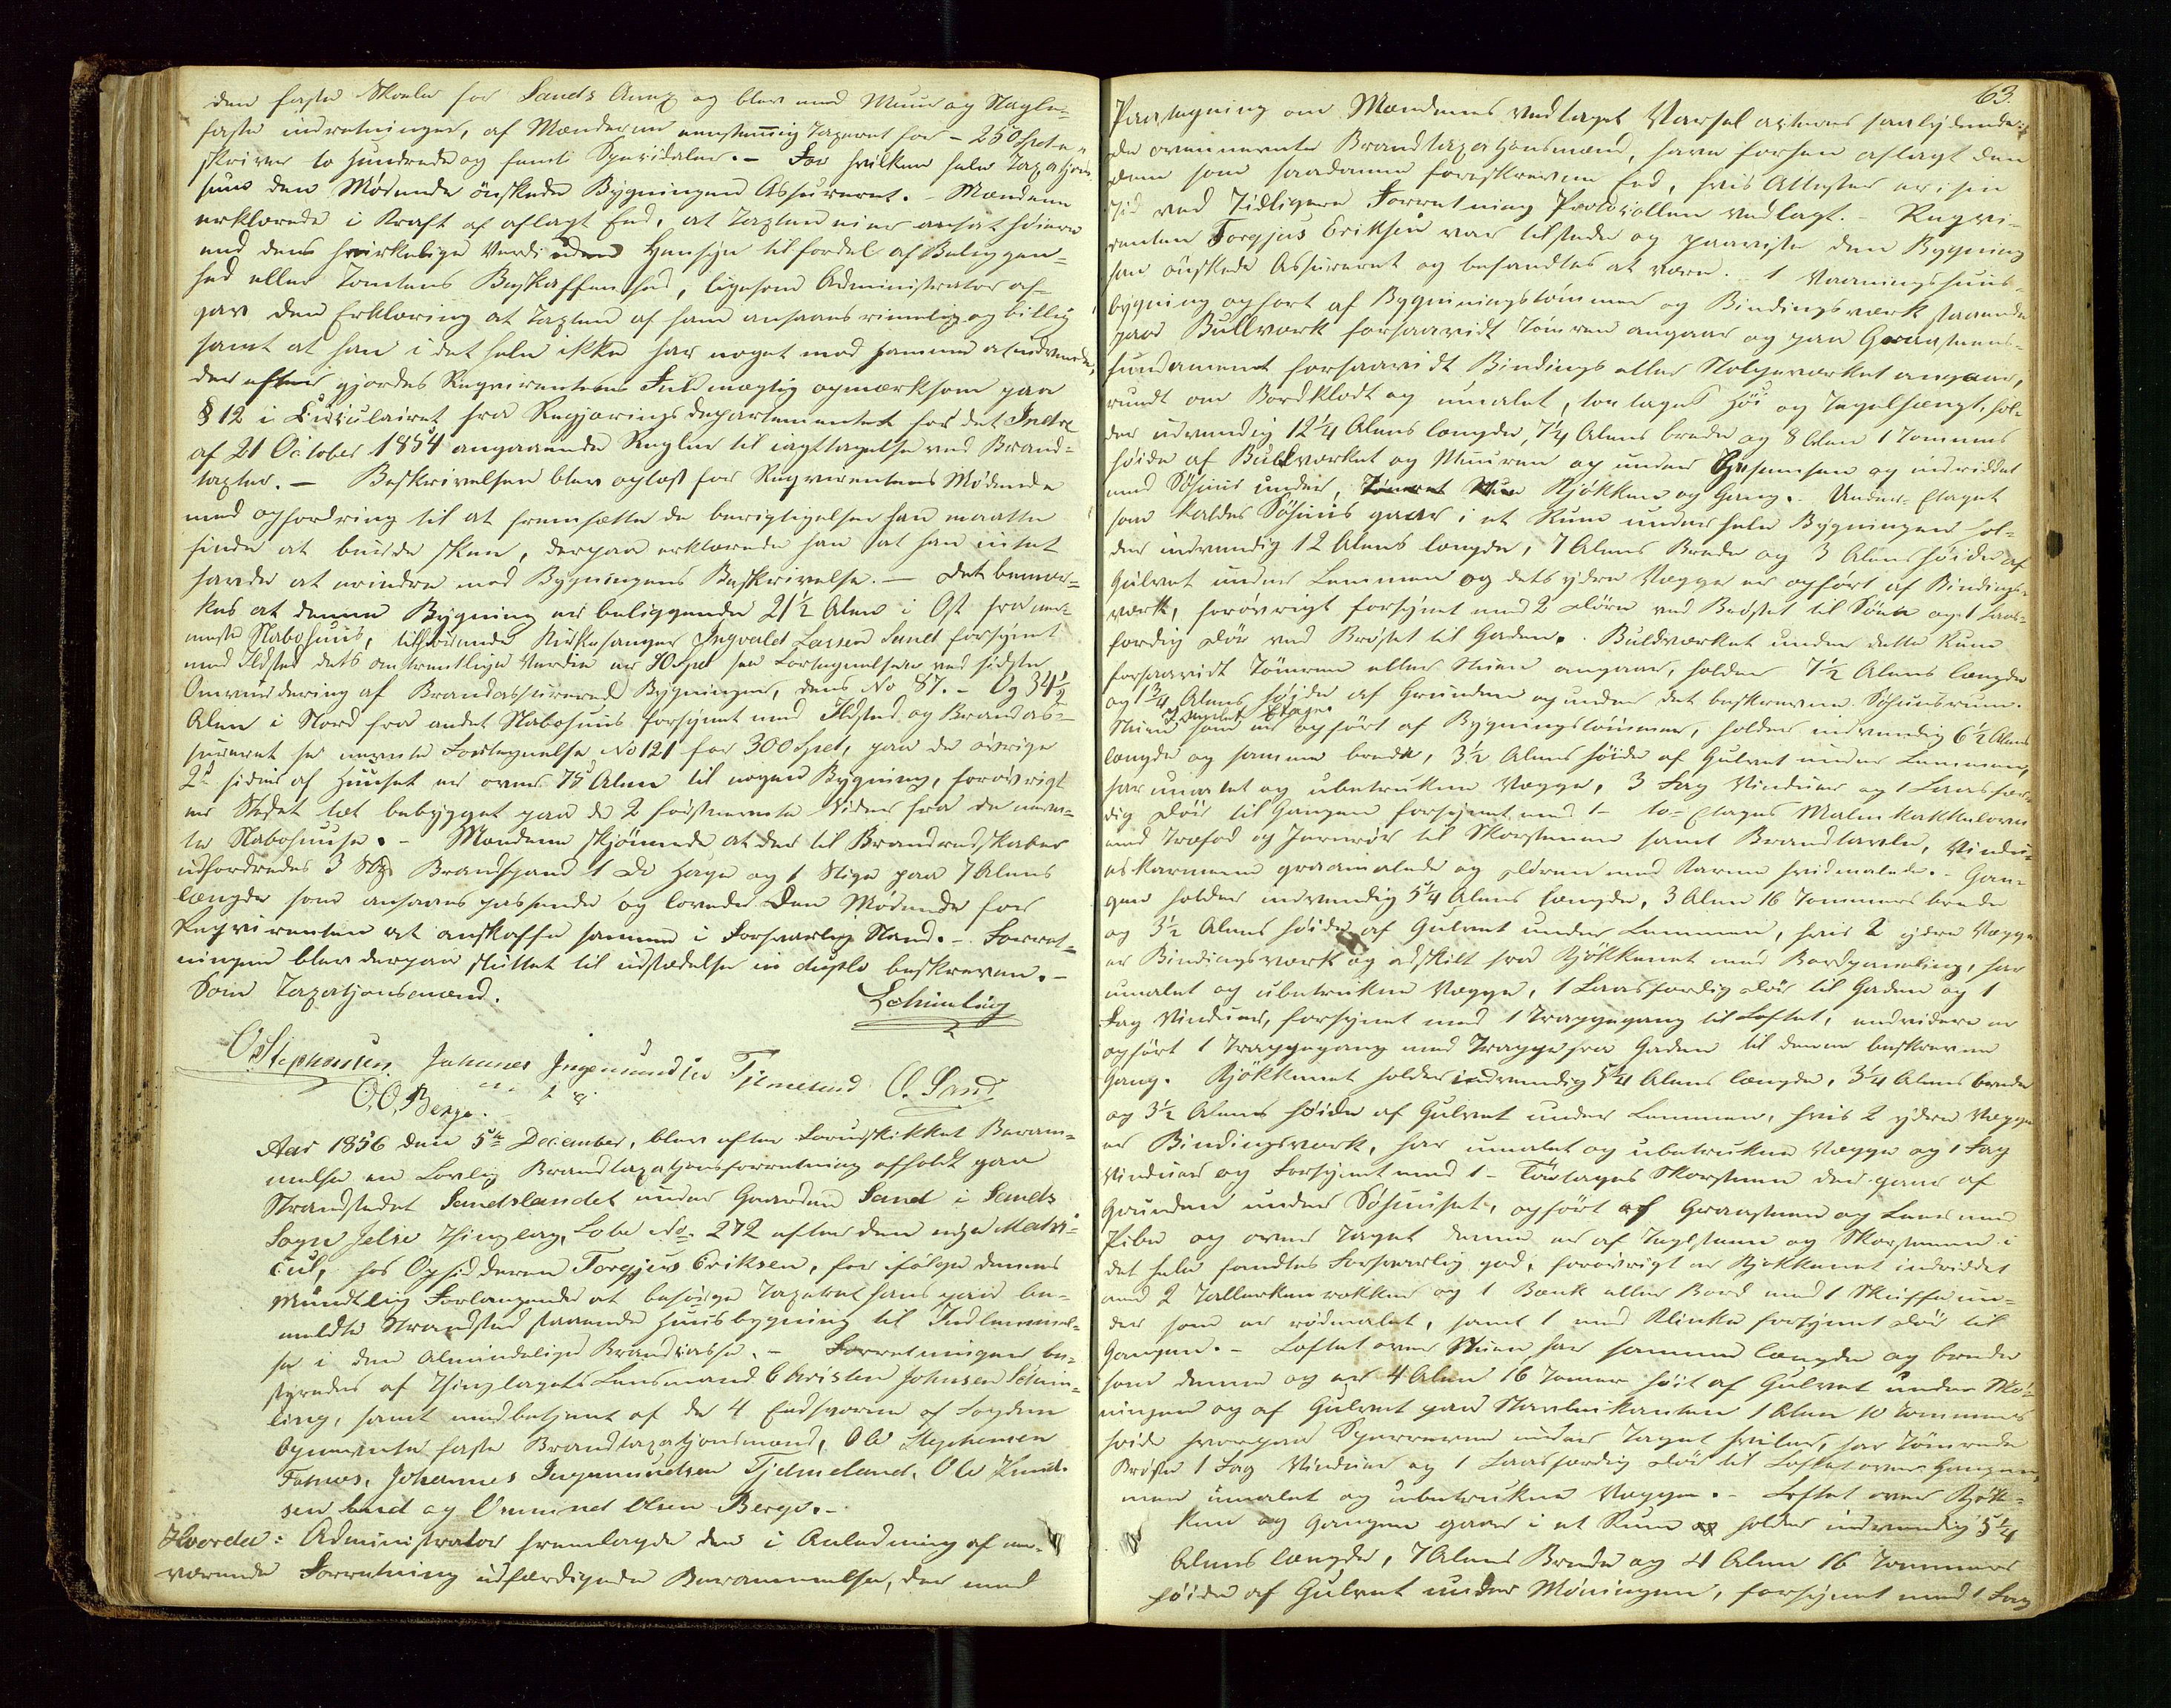 den faste Skole for Sands Annex og blev med Muur og Nagle-
faste indretninger, af Mændene eenstemmig Taxeret for - 250 Spd
skriver to hundrede og femti Speciedaler. - For hvilken hele Taxations
sum den Mødende önskede Bygningen Assureret. - Mændene
erklærede i Kraft af aflagt Eed, at Taxten ei er ansat høiere
end dens virkelige Verdi uden Hensyn til fordel af Beliggen-
hed eller Tomtens Beskaffenhed, ligesom Administrator af-
gav den Erklæring at Taxten af ham ansaaes rimelig og billig
samt at han i det hele ikke har noget mod samme at indvende,
der efter gjordes Reqvirentens Fuldmægtig opmærksom paa
§ 12 i Circulairet fra Regjeringsdepartementet for det Indre
af 21 October 1854 angaaende Regler til iagttagelse ved Brand-
taxter. - Beskrivelsen blev oplæst for Reqvirentens Mødende
med opfordring til at fremsætte de berigtigelser han maatte
finde at burde skee, derpaa erklærede han at han intet
havde at erindre mod Bygningens Beskrivelse. - Det bemær-
kes at denne Bygning er beliggende 21½ Alen i Øst fra nær-
meste Nabohuus, tilhørende Kirkesanger Ingvald Larsen Sand forsynt
med Ildsted dets omtrentlige Værdie er 90 Spd se Fortegnelsen ved sidste
Omvurdering af Brandassurerede Bygninger, dens No 87. - Og 34½
Alen i Nord fra andet Nabohuus forsynet med Ildsted og Brandas-
sureret se nævnte Fortegnelse No 121 for 300 Spd, paa de øvrige
2de sider af Huuset er over 75 Alen til nogen Bygning, forøvrigt
er Stedet tæt bebygget paa de 2 førstnævnte Sider fra de nævn-
te Nabohuuse. - Mændene skjønnede at der til Brandredskaber
udfordredes 3 Brandspand 1 do Hage og 1 Stige paa 7 Alens
længde som ansaaes passende og lovede den Mødende for
Reqvirenten at anskaffe samme i Forsvarlig Stand. - Forret-
ningen blev derpaa sluttet til udstædelse in duplo beskreven. -
Som Taxationsmænd. Schiveling
O Stephensen Johannes Ingemundsen Tjelmeland O. Sand
O. O. Berge.
Aar 1856 den 5te December, blev efter Forudskikket Beram-
melse en Lovlig Brandtaxationsforretning afholdt paa
Strandstedet Sandslandet under Gaarden Sand i Sands
Sogn Jelse Thinglag, Løbe No. 272 efter den nye Matri-
cul, hos Opsidderen Torgjus Eriksen, for ifølge dennes
Mundtlig Forlangende at besørge Taxeret hans paa be-
meldte Strandsted staaende Huusbygning til Indlemmel-
se i den Almindelige Brandcasse. - Forretningen be-
styredes af Thinglagets Lensmand Christen Johnsen Schive-
ling, samt medbetjent af de 4 Eedsvorne af Fogden
Opnævnte faste Brandtaxationsmænd, Ole Stephensen
Johannes Ingemundsen Tjelmeland, Ole Knud-
sen Sand og Ommund Olsen Berge. -
Hvorda: Administrator fremlagde den i Anledning af nær-
værende Forretning udfærdigede Berammelse, der med
63.
Paategning om Mændenes Vedtaget Varsel acteres saalydende:
de ovennævnte Brandtaxationsmænd, have forhen aflagt den
dem som saadanne foreskrevne Eed, hvis Attester er i sin
Tid ved Tidligere Forretning Protocollen vedlagt. - Reqvi-
renten Torgjus Eriksen var tilstede og paaviste den Bygning
han önskede Assureret og befandtes at være. - 1 Vaaningshuus-
bygning opført af Bygningstömmer og Bindingsværk staaende
paa Bullværk forsaavidt Tömren angaar og paa Graasteens-
fundament forsaavidt Bindings eller Stolpeværket angaar,
rundt om Bordklædt og umalet, to etages Høi og Tegelhængt, hol-
der udvendig 12¼ Alens længde, 7¼ Alens brede og 8 Alen 1 Tommes
høide af Bullværket og Muuren op under Gesimsen og indrettet
med Söhuus under, Stue Kjøkken og Gang. Under-Etaget
som kaldes Söhuus gaar i et Rum under hele Bygningen hol-
der indvendig 12 Alens længde, 7 Alens Brede og 3 Alens høide af
Gulvet under Lemmen og dets ydre Vægge er opført af Bindings-
værk, forøvrigt forsynet med 2 Döre ved Brøstet til Söen og 1 Laas-
færdig Dör ved Brøstet til Gaden. - Buldværket under dette Rum
forsaavidt Tömren eller Stuen angaar, holder 7½ Alens længde
og 1¾ Alens høide af Grunden op under det beskrevne Söhuusrum.
Stuen i andet Etage som er opført af Bygningstömmer, holder indvendig 6½ Alens
længde og samme brede, 3½ Alens høide af Gulvet under Lemmen,
har umalet og ubetrukne Vægge, 3 Fag Vinduer og 1 Laasfær-
dig Dör til Gangen forsynet med 1 - to-Etages Malm Kakkelovn
med Træfod og Jernrör til Skorstenen samt Brandtavle, Vindu-
eskarmene graamalede og Dören med Karme hvidmalede. - Gan-
gen holder indvendig 5¼ Alens længde, 3 Alen 16 Tommers brede
og 3½ Alens høide af Gulvet under Lemmen, hvis 2 ydre Vægge
er Bindingsværk og adskilt fra Kjökkenet med Bordpaneling, har
umalet og ubetrukne Vægge, 1 Laasfærdig Dör til Gaden og 1
Fag Vinduer, forsynet med 1 Trappegang til Loftet, endvidere er
opført 1 Trappegang med Trappe fra Gaden til denne beskrevne
Gang. Kjökkenet holder indvendig 5¼ Alens længde, 3¼ Alens brede
og 3½ Alens høide af Gulvet under Lemmen, hvis 2 ydre Vægge
er Bindingsværk, har umalet og ubetrukne Vægge og 1 Fag
Vinduer og Forsynet med 1 - Toetages Skorsteen der gaar af
Grunden under Söhuuset, opført af Graasteen og Leer med
Pibe og over Taget denne er af Teglsteen og Skorstenen i
det hele fandtes Forsvarlig god, forøvrigt er Kjøkkenet indrettet
med 2 Tallerkenrækker og 1 Bænk eller Bord med 1 Skuffe un-
der som er rödmalet, samt 1 med Klinke forsynet Dör til
Gangen. - Loftet over Stuen har samme længde og brede
som denne og er 4 Alen 16 Tomer höit af Gulvet under Mö-
ningen og af Gulvet paa Stavlinekanten 1 Alen 10 Tommers
høide hvorpaa Sperrerne under Taget hviler, har Tömrede
Bröste 1 Fag Vinduer og 1 Laasfærdig Dör til Loftet over Gangen,
men umalet og ubetrukne Vægge. - Loftet over Kjök-
ken og Gangen gaar i et Rum holder indvendig 5¼
Alens længde, 7 Alens Brede og 4 Alen 16 Tommers
høide af Gulvet under Möningen, forsynet med 1 Fag